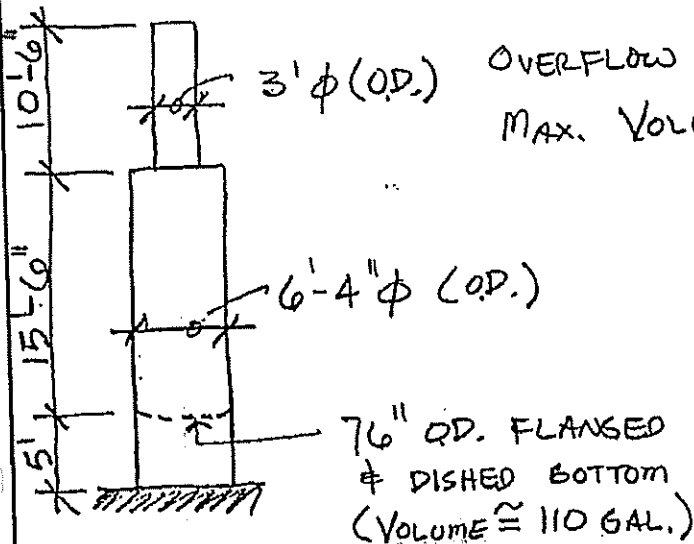 10'-6"
3' φ (O.D.)
OVERFLOW
MAX.
15'-6"
6'-4" φ (O.D.)
5'
76" O.D. FLANGED
& DISHED BOTTOM
(VOLUME ≅ 110 GAL.)